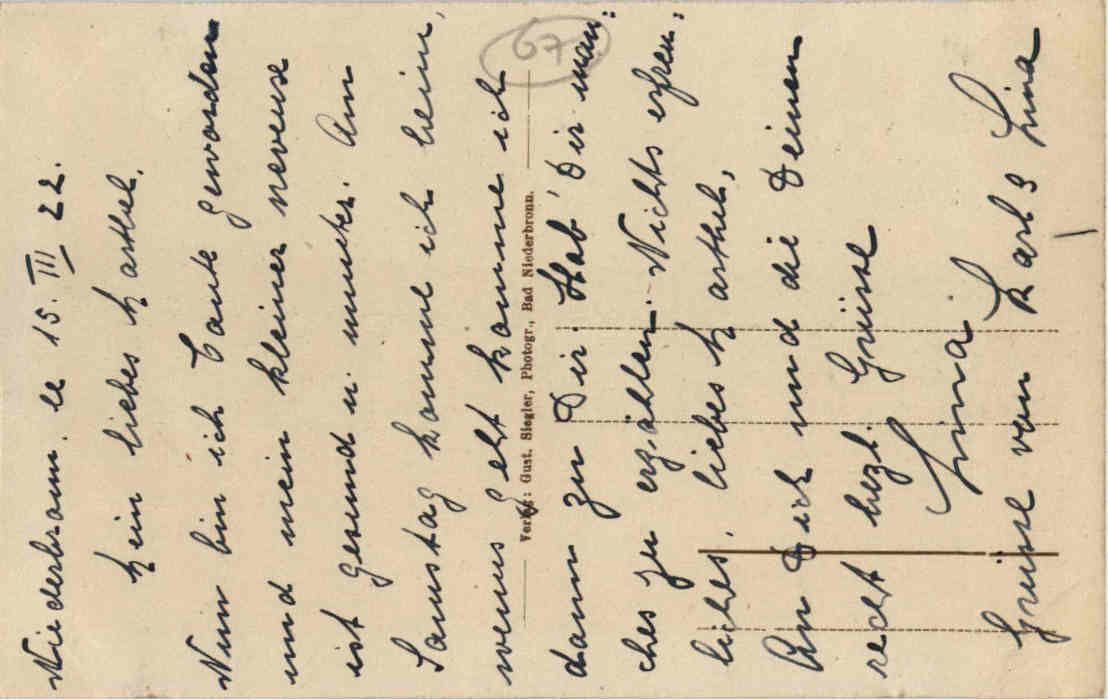 Niederbronn. le 15. III 22.
Mein liebes Marthel.
Nun bin ich Tante geworden
und mein kleiner neveuse
ist gesund u. munter. Am
Samstag komme ich heim,
wenns geht komme ich
dann zu Dir. Hab' Dir man:
ches zu erzählen. Nichts erfreu:
liches, liebes Marthel,
An Dich und die Deinen
recht herzl. Grüsse
Lina
Grüsse von Karls Lina
Verlag: Gust. Siegler, Photogr., Bad Niederbronn.
67